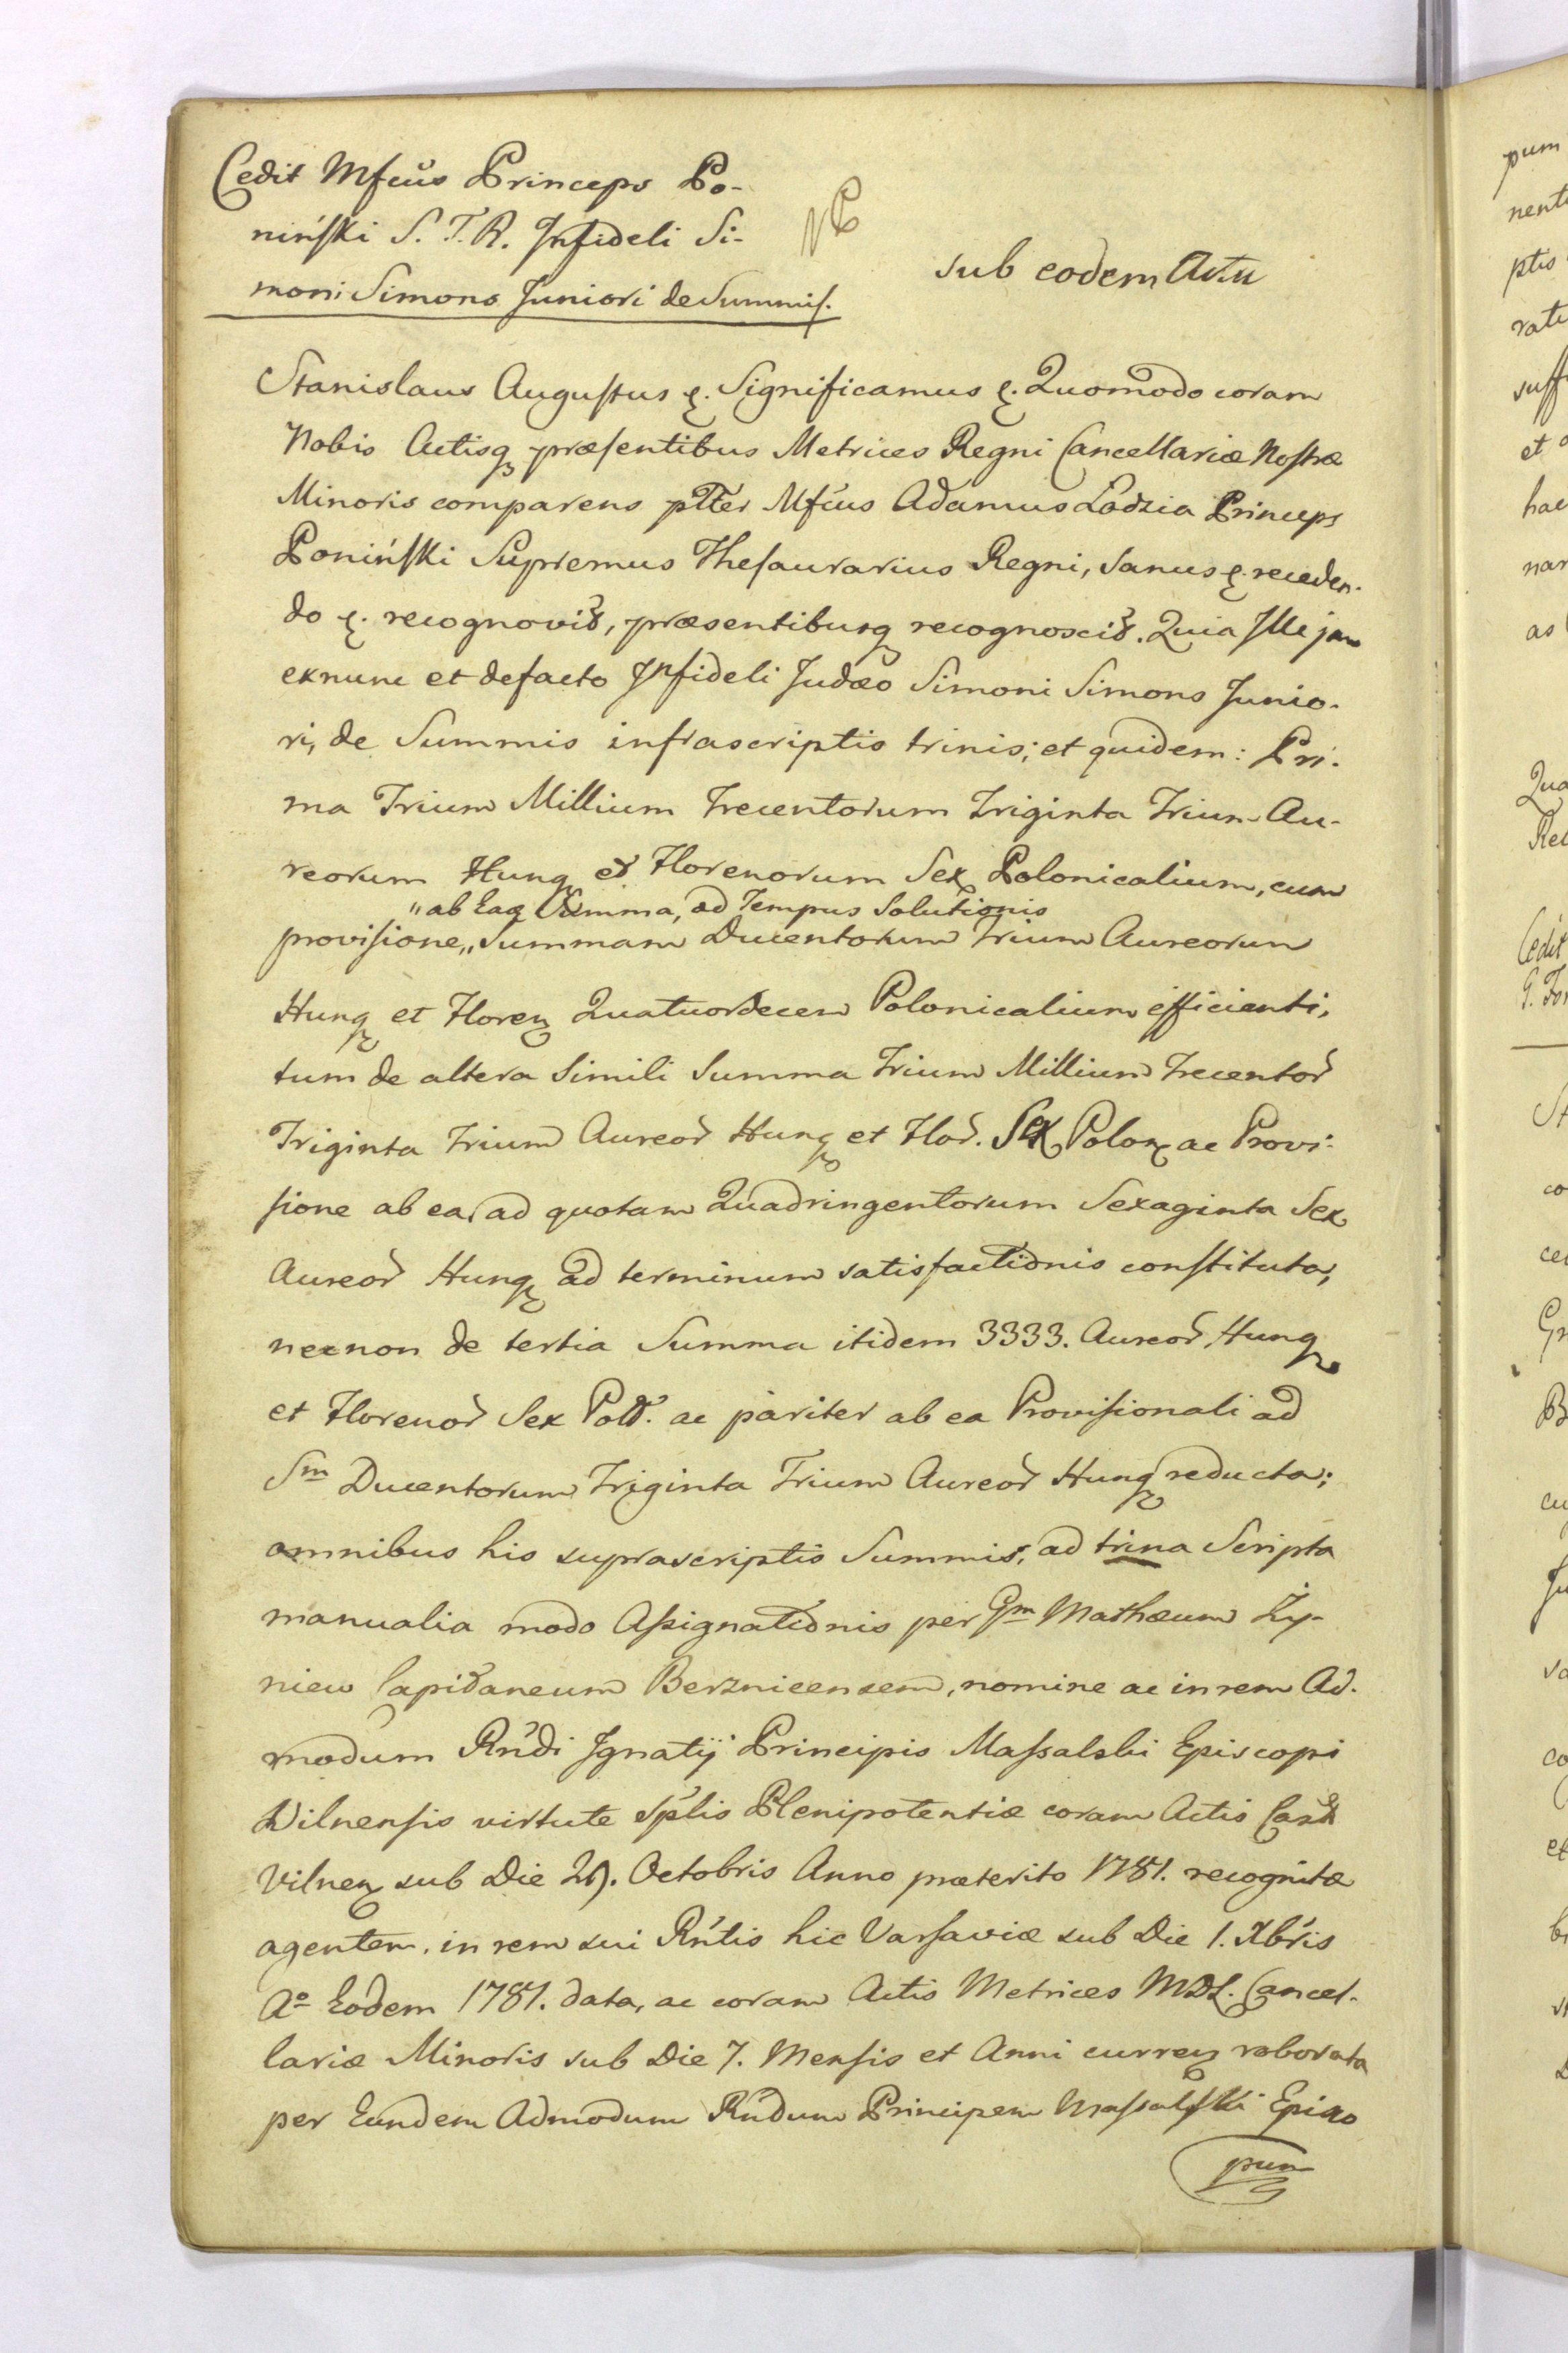 Cedit Mfcus Princeps Po-
nińſki S. T. R. Infideli Si-
moni Simons Juniori de Summis.
NB
sub eodem Actu
Stanislaus Auguſtus &. Significamus &. Quomodo coram
Nobis Actisq præſentibus Metrices Regni Cancellariæ Noſtræ
Minoris comparens pltter Mfcus Adamus Łodzia Princeps
Ponińſki Supremus Theſaurarius Regni, sanus &. receden-
do &. recognovit, præsentibusq recognoscit. Quia Ille jam
exnunc et defacto Infideli Judæo Simoni Simons Junio-
ri, de Summis infrascriptis trinis; et quidem: Pri-
ma Trium Millium Trecentorum Triginta Trium Au-
reorum Hung et Florenorum Sex Polonicalium, cum
"ab Eaq Summa, ad Tempus Solutionis
proviſione, "Summam Ducentorum Trium Aureorum
Hung et Floren Quatuordecem Polonicalium efficienti,
tum de altera Simili Summa Trium Millium Trecentor
Triginta Trium Aureor Hung et Flor. Sex Polon ac Provi-
ſione ab ea, ad quotam Quadringentorum Sexaginta Sex
Aureor Hung ad terminum satisfactionis conſtituta,
necnon de tertia Summa itidem 3333. Aureor Hung
et Florenor Sex Pol. ac pariter ab ea Proviſionali ad
Sm Ducentorum Triginta Trium Aureor Hung reducta;
omnibus his suprascriptis Summis, ad trina Scripta
manualia modo Aſsignationis per Gm Mathæum Ży-
niew Capidaneum Berznicensem, nomine ac in rem Ad-
modum Rndi Ignatij Principis Maſsalski Episcopi
Vilnenſis virtute splis Plenipotentiæ coram Actis Castr
Vilnen sub Die 29. Octobris Anno præterito 1781. recognitæ
agentem, in rem sui Rntis hic Varſaviæ sub Die 1. Xbris
Ao Eodem 1781. data, ac coram Actis Metrices MDL. Cancel-
lariæ Minoris sub Die 7. Menſis et Anni curren roborata
per Eundem Admodum Rndum Principem Maſsalſki Episco
pum
pum
nent
ptis
rati
suff
et
hae
nar
as
Qua
Rec
Cedit
St
co
et